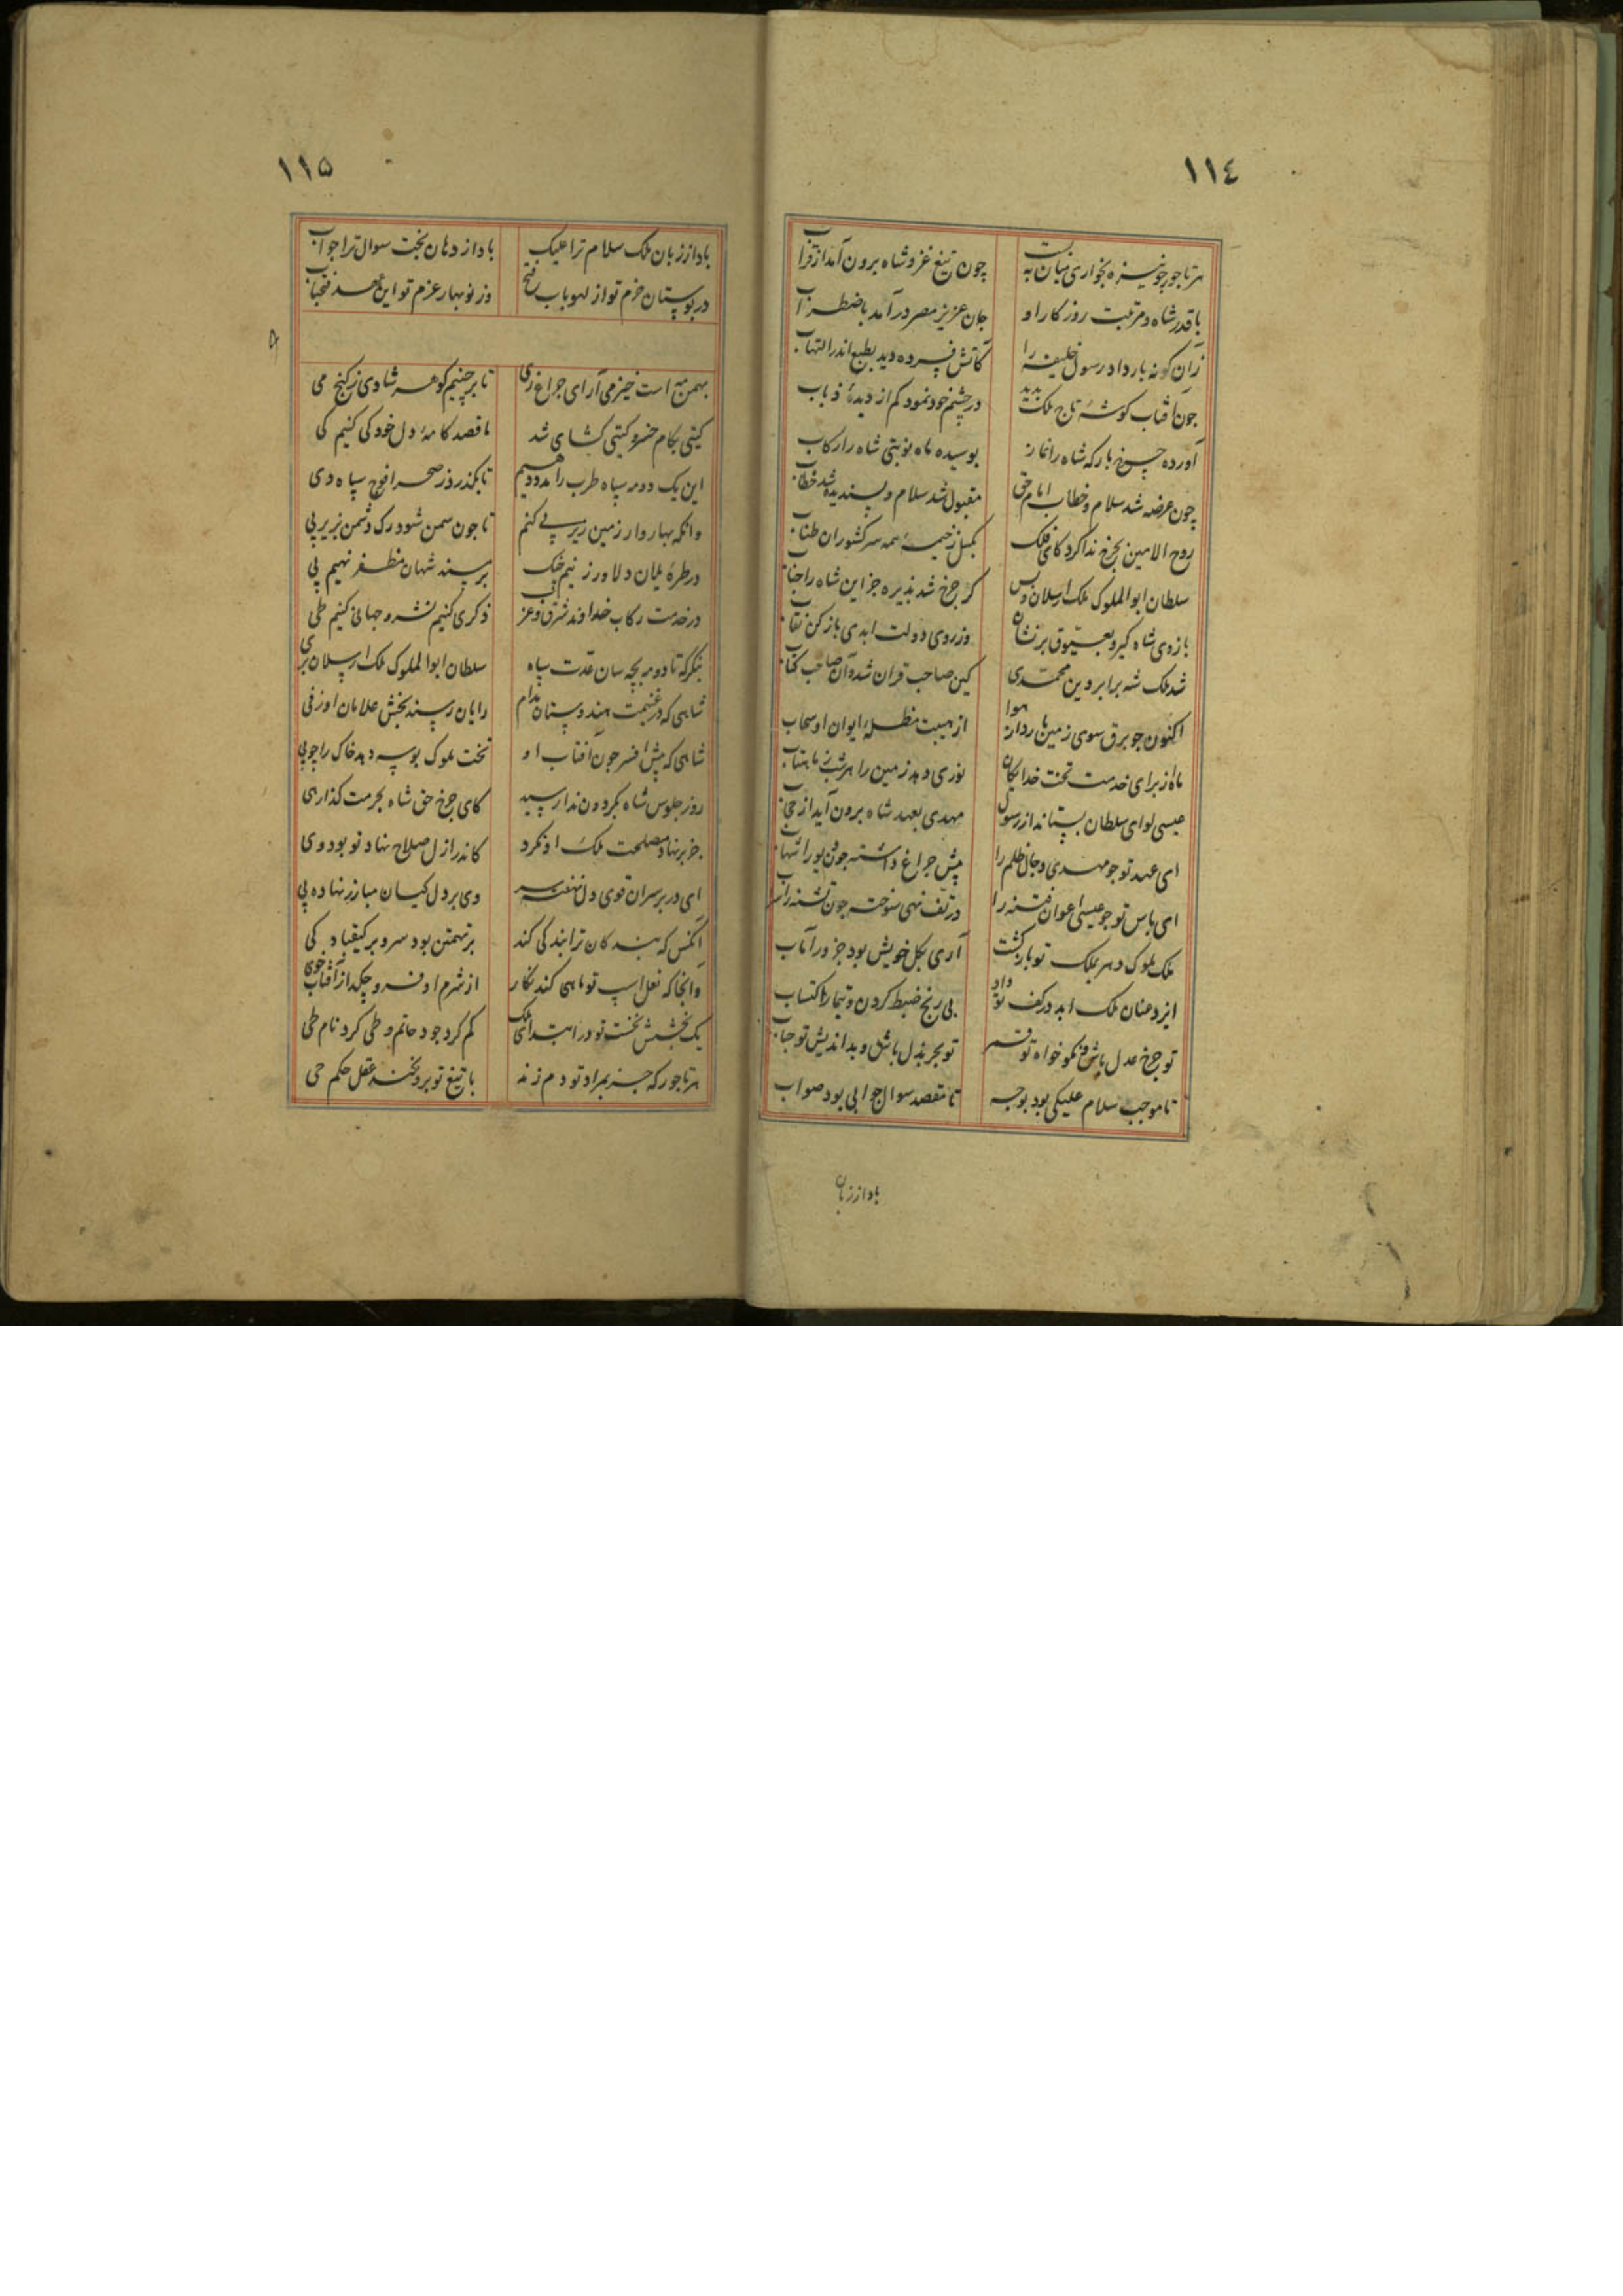 ١١٤
هر تاجور چو نیزه بخواری میان به بست
چون تیغ غزو شاه برون آمد از قراب
با قدر شاه و مرتبت روزکار او
جان عزیز مصر درآمد باضطراب
زان کونه بار داد رسول خلیفه را
کاتش فسرده دید بطبع اندر التهاب
چون آفتاب کوشهٔ تاج ملک بدید
در چشم خود نمود کم از دیدهٔ ذباب
آورده چرخ بارکه شاه را نماز
بوسیده ماه نوبتی شاه را رکاب
چون عرضه شد سلام و خطاب امام حق
مقبول شد سلام و پسندیده شد خطاب
روح الامین بچرخ ندا کرد کای فلک
بکسل ز خیمهٔ همه سرکشوران طناب
سلطان ابوالملوک ملک ارسلان و بس
کر چرخ شد پذیره جز این شاه را جناب
بازوی شاه کیر و بعیوق برنشان
وز روی دولت ابدی باز کن نقاب
شد ملک شه برابر دین محمدی
کین صاحب قران شد و آن صاحب کتاب
اکنون چو برق سوی زمین هوا
از هیبت مظلهٔ ایوان او سحاب
ماه از برای خدمت تخت خدایکان
نوری دهد زمین را هر شب ز ماهتاب
عیسی لوای سلطان بستاند از رسول
مهدی بعهد شاه برون آید از حجاب
ای عهد تو چو مهدی دجال ظلم را
پیش چراغ داشته چون پور
ای باس تو چو عیسی اعوان فتنه را
در تف نهی سوخته چون تشنه را سراب
ملک ملوک دهر بملک تو بازکشت
آری بکل خویش بود جزو را مآب
ایزد عنان ملک ابد در کف تو داد
بی رنج ضبط کردن و تیمار اکتساب
تو چرخ عدل باش و نکو خواه تو قمر
تو بحر بذل باش و بداندیش تو حباب
تا موجب سلام علیکی بود بوجه
تا مقصد سوال جوابی بود صواب
باد از زبان
١١۵
باد از زبان ملک سلام ترا علیک
باد از دهان بخت سوال ترا جواب
در بوستان حزم تو از لهو باب فتح
وز نوبهار عزم تو این عهد فتحباب
بهمن مه است خیز می آر ای چراغ ری
تا برچنیم کوهر شادی ز کنج می
کیتی بکام خسرو کیتی کشای شد
ما قصد کامهٔ دل خود کی کنیم کی
این یک دو مه سپاه طرب را مدد دهیم
تا بکذرد ز صحرا فوج سپاه دی
وانکه بهاروار زمین زیر پی کنیم
تا چون سمن شود رک دشمن بزیر پی
در طرهٔ یلان دلاور زنیم چنک
بر سند شهان مظفر نهیم پی
در خدمت رکاب خداوند شرق و غرب
ذکری کنیم نشر و جهانی کنیم طی
بنکر که تا دو مه بچه سان عدت سپاه
سلطان ابوالملوک ملک ارسلان بری
شاهی که در غنیمت هندوستان مدام
رایان رسند بخش غلامان او ز فی
شاهی که پیش افسر چون آفتاب او
تخت ملوک بوسه دهد خاک را چو پی
روز جلوس شاه بکردون ندا رسید
کای چرخ حق شاه بحرمت کذار هی
جز بر نهاد مصلحت ملک او نکرد
کاندر ازل صلاح نهاد تو بود وی
ای در بر سران قوی دل نهفته سر
وی بر دل کیان مبارز نهاده پی
آنکس که بندکان ترا بندکی کند
برتهمتن بود سر و بر کیقباد کی
وانجا که نعل اسپ تو ماهی کند نکار
از شرم او فرو چکد از آفتاب خوی
یک بخشش نخست تو در ابتدای ملک
کم کرد جود حاتم و طی کرد نام طی
هر تاجور که جز بمراد تو دم زند
با تیغ تو برو نکند عقل حکم حی